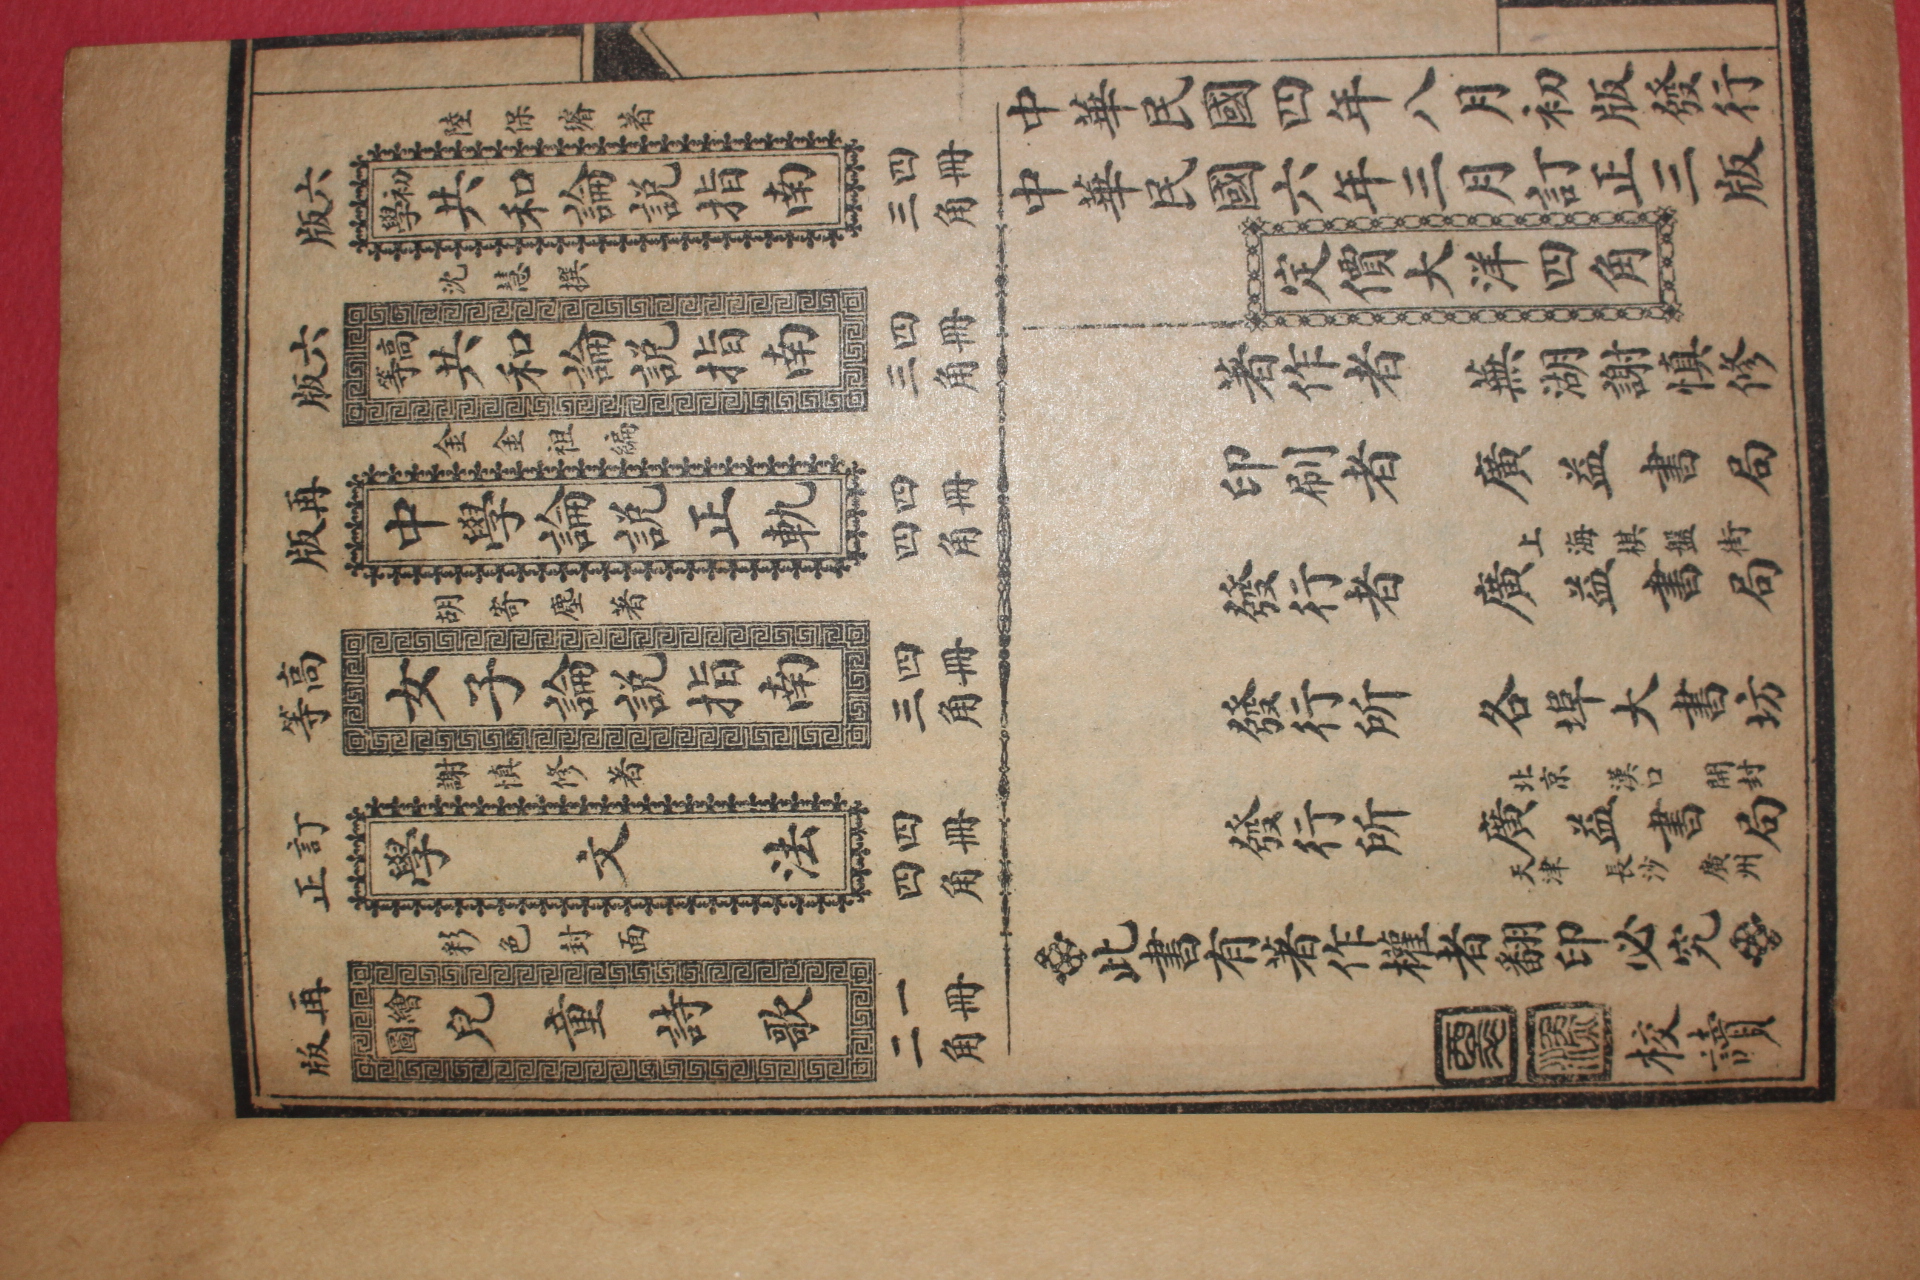 六版
陸保璿著
初學共和論說指南
四冊
三角
六版
沈慧撰
高等共和論說指南
四冊
三角
再版
金金祖編
中學論說正軌
四冊
四角
高等
胡寄塵著
女子論說指南
四冊
三角
訂正
謝慎修著
學文法
四冊
四角
再版
彩色封面
繪圖兒童詩歌
一冊
二角
中華民國四年八月初版發行
中華民國六年三月訂正三版
定價大洋四角
著作者 蕪湖謝慎修
印刷者 廣益書局
發行者 上海棋盤街 廣益書局
發行所 各埠大書坊
發行所 北京 漢口 開封 廣益書局 天津 長沙 廣州
此書有著作權者翻印必究
校讀